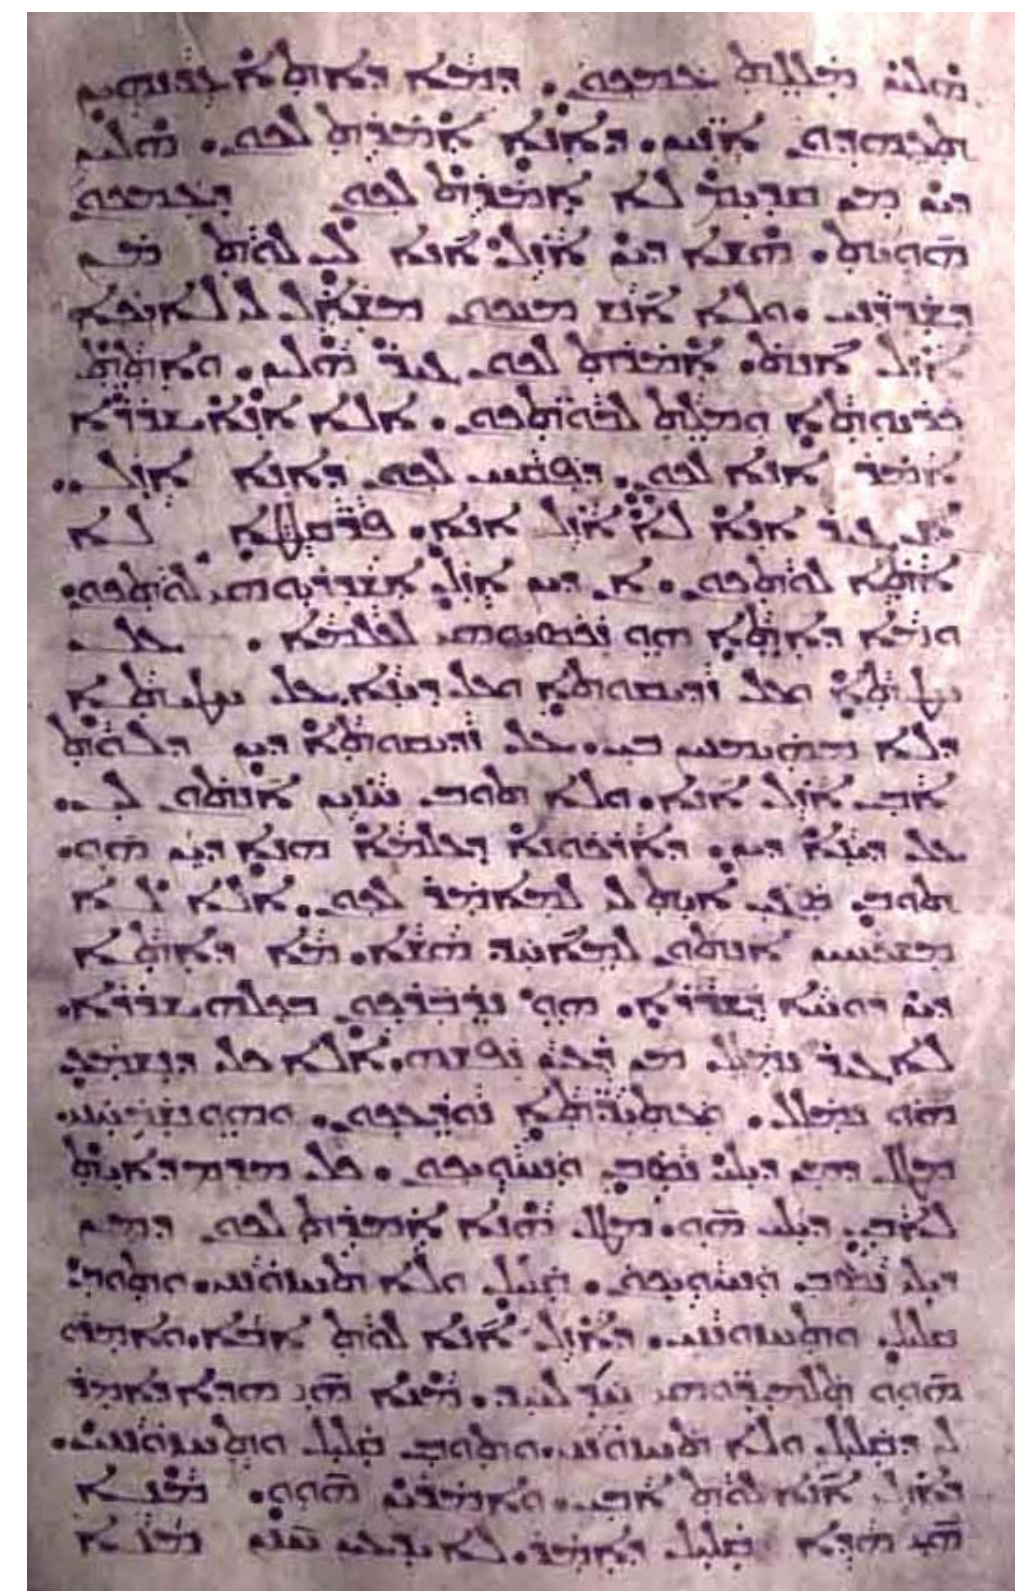 ܗܠܝܢ ܡܠܠܬ ܥܡܟܘܢ. ܕܡܐ ܕܐܬܐ ܥܕܢܗܝܢ
ܬܥܗܕܘܢ ܐܢܝܢ. ܕܐܢܐ ܐܡܪܬ ܠܟܘܢ. ܗܠܝܢ
ܕܝܢ ܡܢ ܩܕܝܡ ܠܐ ܐܡܪܬ ܠܟܘܢ ܕܥܡܟܘܢ
ܗܘܝܬ. ܗܫܐ ܕܝܢ ܐܙܠ ܐܢܐ ܠܝ ܠܘܬ ܡܢ
ܕܫܕܪܢܝ. ܘܠܐ ܐܢܫ ܡܢܟܘܢ ܡܫܐܠ ܠܝ ܠܐܝܟܐ
ܐܙܠ ܐܢܬ. ܐܡܪܬ ܠܟܘܢ ܓܝܪ ܗܠܝܢ. ܘܐܬܬ
ܟܪܝܘܬܐ ܘܡܠܬ ܠܒܘܬܟܘܢ. ܐܠܐ ܐܢܐ ܫܪܪܐ
ܐܡܪ ܐܢܐ ܠܟܘܢ. ܕܦܩܚ ܠܟܘܢ ܕܐܢܐ ܐܙܠ.
ܐܢ ܓܝܪ ܐܢܐ ܠܐ ܐܙܠ ܐܢܐ. ܦܪܩܠܛܐ ܠܐ
ܐܬܐ ܠܘܬܟܘܢ. ܐܢ ܕܝܢ ܐܙܠ ܐܫܕܪܝܘܗܝ ܠܘܬܟܘܢ.
ܘܡܐ ܕܐܬܐ ܗܘ ܢܟܣܝܘܗܝ ܠܥܠܡܐ. ܥܠ
ܚܛܝܬܐ ܘܥܠ ܙܕܝܩܘܬܐ ܘܥܠ ܕܝܢܐ. ܥܠ ܚܛܝܬܐ
ܕܠܐ ܡܗܝܡܢܝܢ ܒܝ. ܥܠ ܙܕܝܩܘܬܐ ܕܝܢ ܕܠܘܬ
ܐܒܝ ܐܙܠ ܐܢܐ. ܘܠܐ ܬܘܒ ܚܙܝܢ ܐܢܬܘܢ ܠܝ.
ܥܠ ܕܝܢܐ ܕܝܢ. ܕܐܪܟܘܢܐ ܕܥܠܡܐ ܗܢܐ ܕܝܢ ܗܘ.
ܬܘܒ ܣܓܝ ܐܝܬ ܠܝ ܠܡܐܡܪ ܠܟܘܢ. ܐܠܐ ܠܐ
ܡܫܟܚܝܢ ܐܢܬܘܢ ܠܡܐܚܕ ܗܫܐ. ܡܐ ܕܐܬܐ
ܕܝܢ ܪܘܚܐ ܕܫܪܪܐ. ܗܘ ܢܕܒܪܟܘܢ ܒܟܠܗ ܫܪܪܐ.
ܠܐ ܓܝܪ ܢܡܠܠ ܡܢ ܪܥܝܢ ܢܦܫܗ. ܐܠܐ ܟܠ ܕܢܫܡܥ
ܗܘ ܢܡܠܠ. ܘܥܬܝܕܬܐ ܢܘܕܥܟܘܢ. ܘܗܘ ܢܫܒܚܢܝ.
ܡܛܠ ܕܡܢ ܕܝܠܝ ܢܣܒ ܘܢܚܘܝܟܘܢ. ܟܠ ܡܕܡ ܕܐܝܬ
ܠܐܒܝ ܕܝܠܝ ܗܘ. ܡܛܠ ܗܢܐ ܐܡܪܬ ܠܟܘܢ ܕܡܢ
ܕܝܠܝ ܢܣܒ ܘܢܚܘܝܟܘܢ. ܩܠܝܠ ܘܠܐ ܬܚܙܘܢܢܝ. ܘܬܘܒ
ܩܠܝܠ ܘܬܚܙܘܢܢܝ. ܕܐܙܠ ܐܢܐ ܠܘܬ ܐܒܐ. ܘܐܡܪܘ
ܗܘܘ ܬܠܡܝܕܘܗܝ ܚܕ ܠܚܕ. ܡܢܐ ܗܝ ܗܕܐ ܕܐܡܪ
ܠܢ ܕܩܠܝܠ ܘܠܐ ܬܚܙܘܢܢܝ. ܘܬܘܒ ܩܠܝܠ ܘܬܚܙܘܢܢܝ.
ܕܐܙܠ ܐܢܐ ܠܘܬ ܐܒܝ. ܘܐܡܪܝܢ ܗܘܘ. ܡܢܐ
ܗܝ ܗܕܐ ܩܠܝܠ ܕܐܡܪ. ܠܐ ܝܕܥܝܢ ܚܢܢ ܡܢܐ